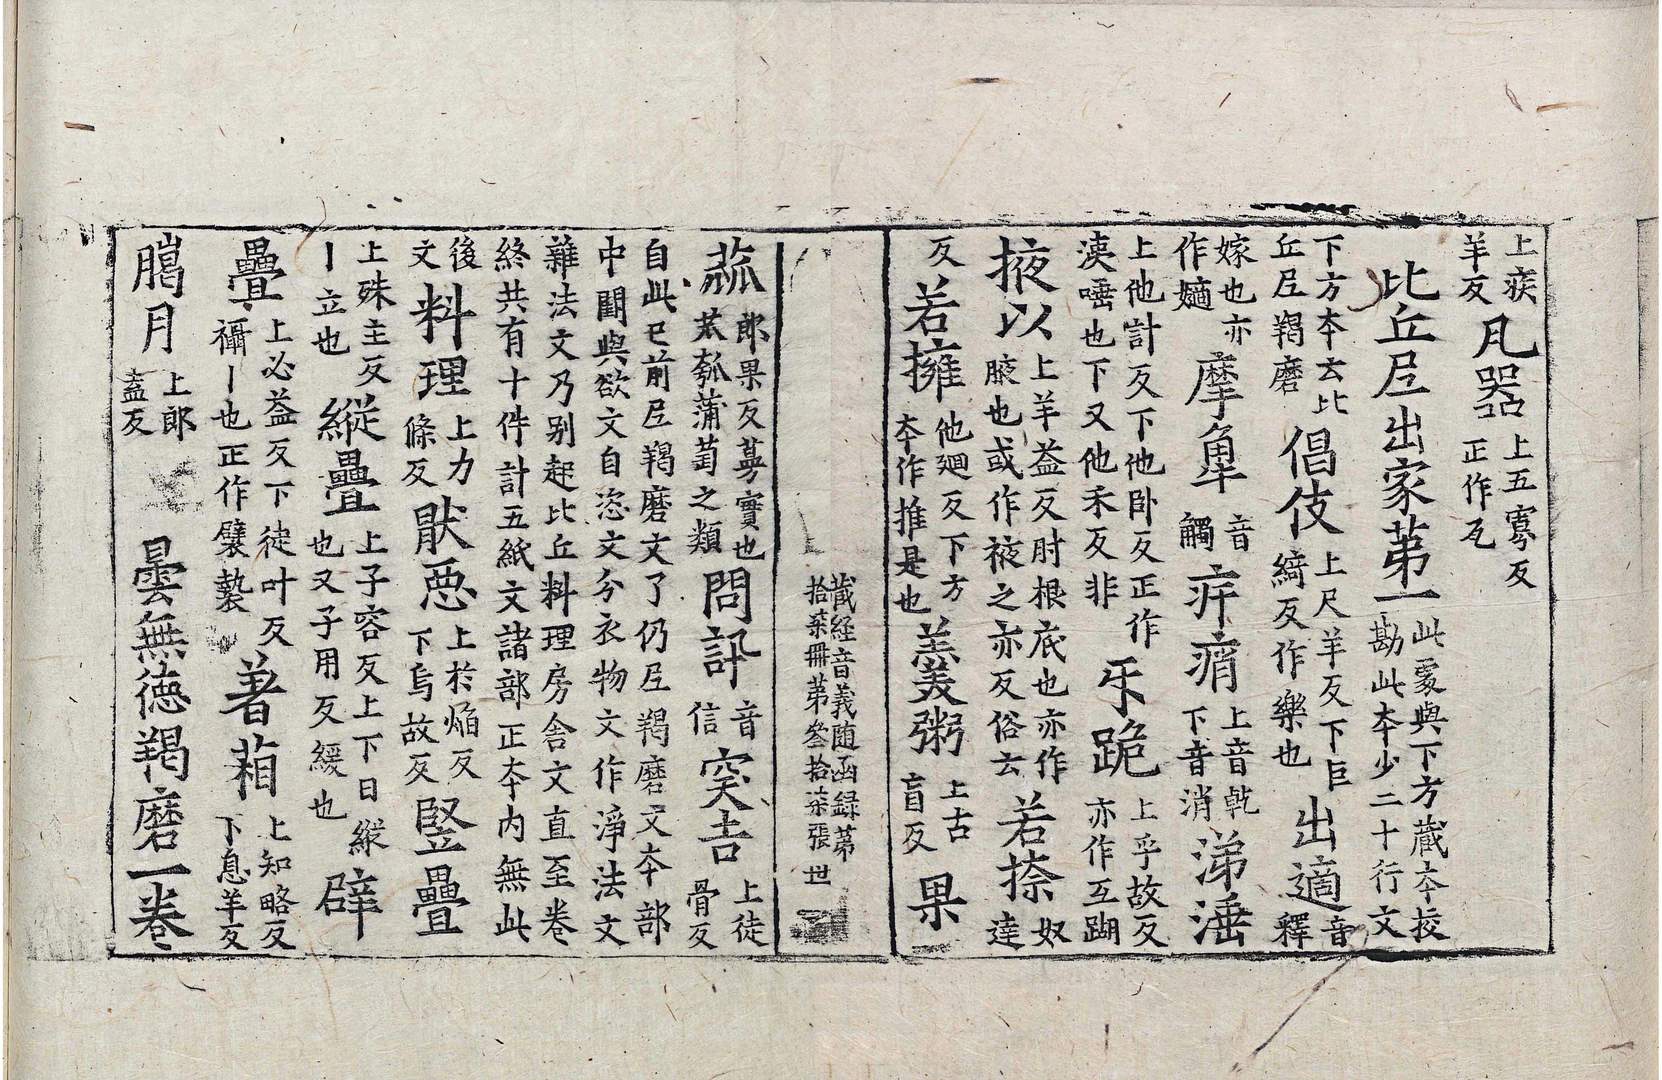 上疾羊反 凡器 上五寡反正作瓦
比丘尼出家苐一 此處與下方藏夲挍勘此夲少二十行文
下方夲云比丘尼羯磨 倡伎 上尺羊反下巨綺反作樂也 出適 音釋
嫁也亦作嫡 摩㡿 音觸 疜痟 上音乹下音消 涕涶
上他計反下他卧反正作涶唾也下又他禾反非 㸦跪 上乎故反亦作互𨂂
掖以 上羊益反肘根底也亦作腋也或作䘸之亦反俗云 若捺 奴達
反 若擁 他廻反下方夲作推是也 羹粥 上古盲反 果
藏経音義随函録苐拾柒冊苐叁拾柒張 世
蓏 郎果反蔓實也苽瓠蒲萄之類 問訊 音信 突吉 上徒骨反
自此巳前尼羯磨文了仍尼羯磨文夲部
中闕與欲文自恣文分衣物文作淨法文
雜法文乃别起比丘料理房舎文直至卷
終共有十件計五紙文諸部正夲内無此
後文 料理 上力條反 猒惡 上於焔反下烏故反 竪疊
上殊主反丨立也 縱疊 上子容反上下曰縱也又子用反緩也 辟
疊 上必益反下徒叶反襵丨也正作襞褺 著葙 上知略反下息羊反
臈月 上郎盍反 曇無徳羯磨一卷